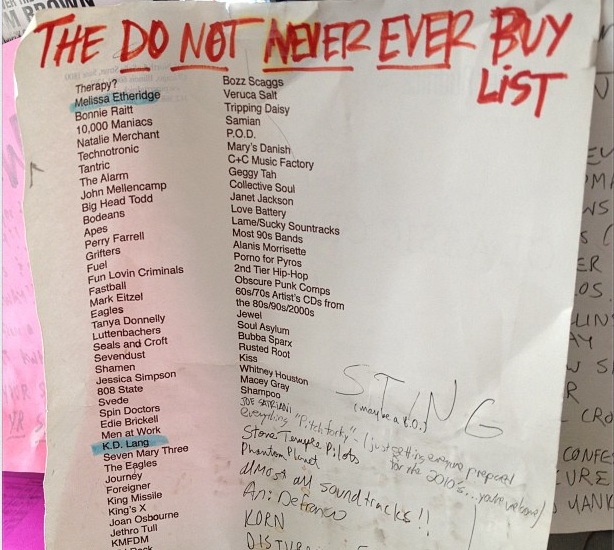 M BROWN
THE DO NOT NEVER EVER BUY
LIST
Therapy?
Melissa Etheridge
Bonnie Raitt
10,000 Maniacs
Natalie Merchant
Technotronic
Tantric
The Alarm
John Mellencamp
Big Head Todd
Bodeans
Apes
Perry Farrell
Grifters
Fuel
Fun Lovin Criminals
Fastball
Mark Eitzel
Eagles
Tanya Donnelly
Luttenbachers
Seals and Croft
Sevendust
Shamen
Jessica Simpson
808 State
Svede
Spin Doctors
Edie Brickell
Men at Work
K.D. Lang
Seven Mary Three
The Eagles
Journey
Foreigner
King Missile
King's X
Joan Osbourne
Jethro Tull
KMFDM
Bozz Scaggs
Veruca Salt
Tripping Daisy
Samian
P.O.D.
Mary's Danish
C+C Music Factory
Geggy Tah
Collective Soul
Janet Jackson
Love Battery
Lame/Sucky Sountracks
Most 90s Bands
Alanis Morrisette
Porno for Pyros
2nd Tier Hip-Hop
Obscure Punk Comps
60s/70s Artist's CDs from
the 80s/90s/2000s
Jewel
Soul Asylum
Bubba Sparx
Rusted Root
Kiss
Whitney Houston
Macey Gray
Shampoo
JOE SATRIANI
STING
(maybe a B.O.)
everything "Pitchforky" - (just getting everyone prepared
for the 2010's... you're welcome)
Stone Temple Pilots
Phantom Planet
almost all soundtracks!!
Ani DeFranco
KORN